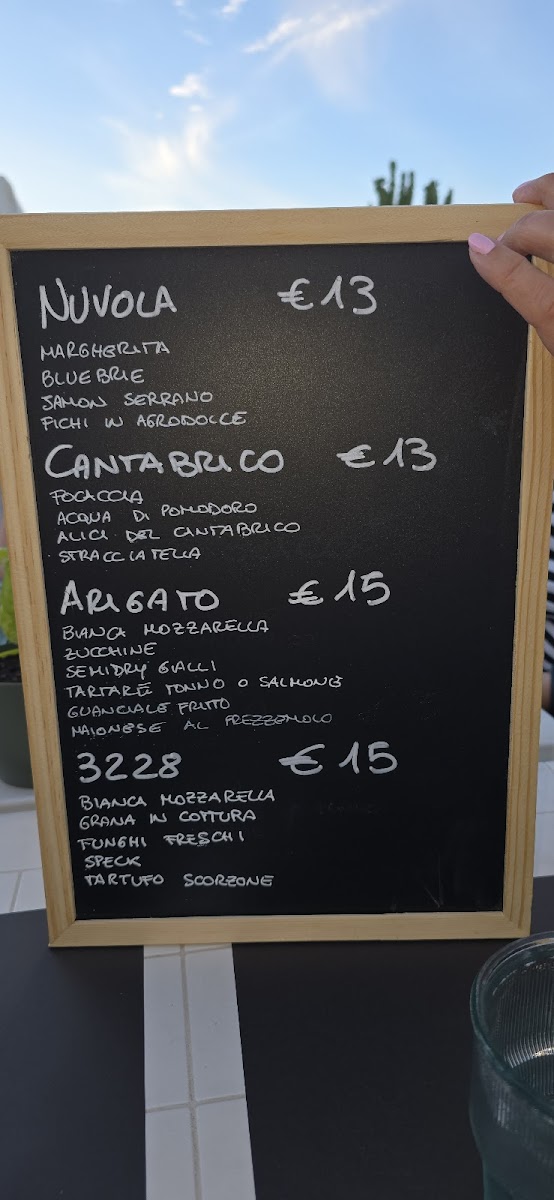 NUVOLA €13
MARGHERITA
BLUEBRIE
JAMON SERRANO
FICHI IN AGRODOLCE
CANTABRICO €13
FOCACCIA
ACQUA DI POMODORO
ALICI DEL CANTABRICO
STRACCIATELLA
ARIGATO €15
BIANCA MOZZARELLA
ZUCCHINE
SEMIDRY GIALLI
TARTARE TONNO O SALMONE
GUANCIALE FRITTO
MAIONESE AL PREZZEMOLO
3228 €15
BIANCA MOZZARELLA
GRANA IN COTTURA
FUNGHI FRESCHI
SPECK
TARTUFO SCORZONE